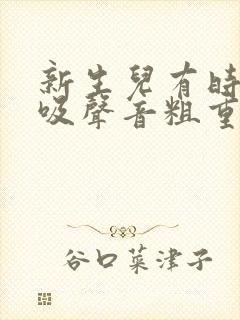 新生兒有時
吸聲音粗重
谷口菜津子